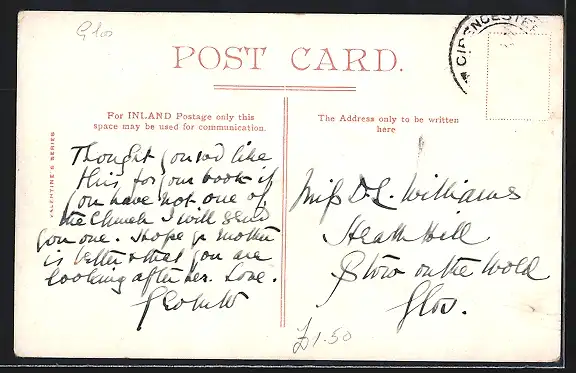 Glos
POST CARD.
CIRENCESTER
For INLAND Postage only this
space may be used for communication.
The Address only to be written
here
VALENTINE'S SERIES
Thought you wd like
this for your book if
you have not one of
the Church I will send
you one. Hope yr Mother
is better & that you are
looking after her. Love.
Miss D. L. Williams
Heath Hill
Stow on the Wold
Glos.
£1.50